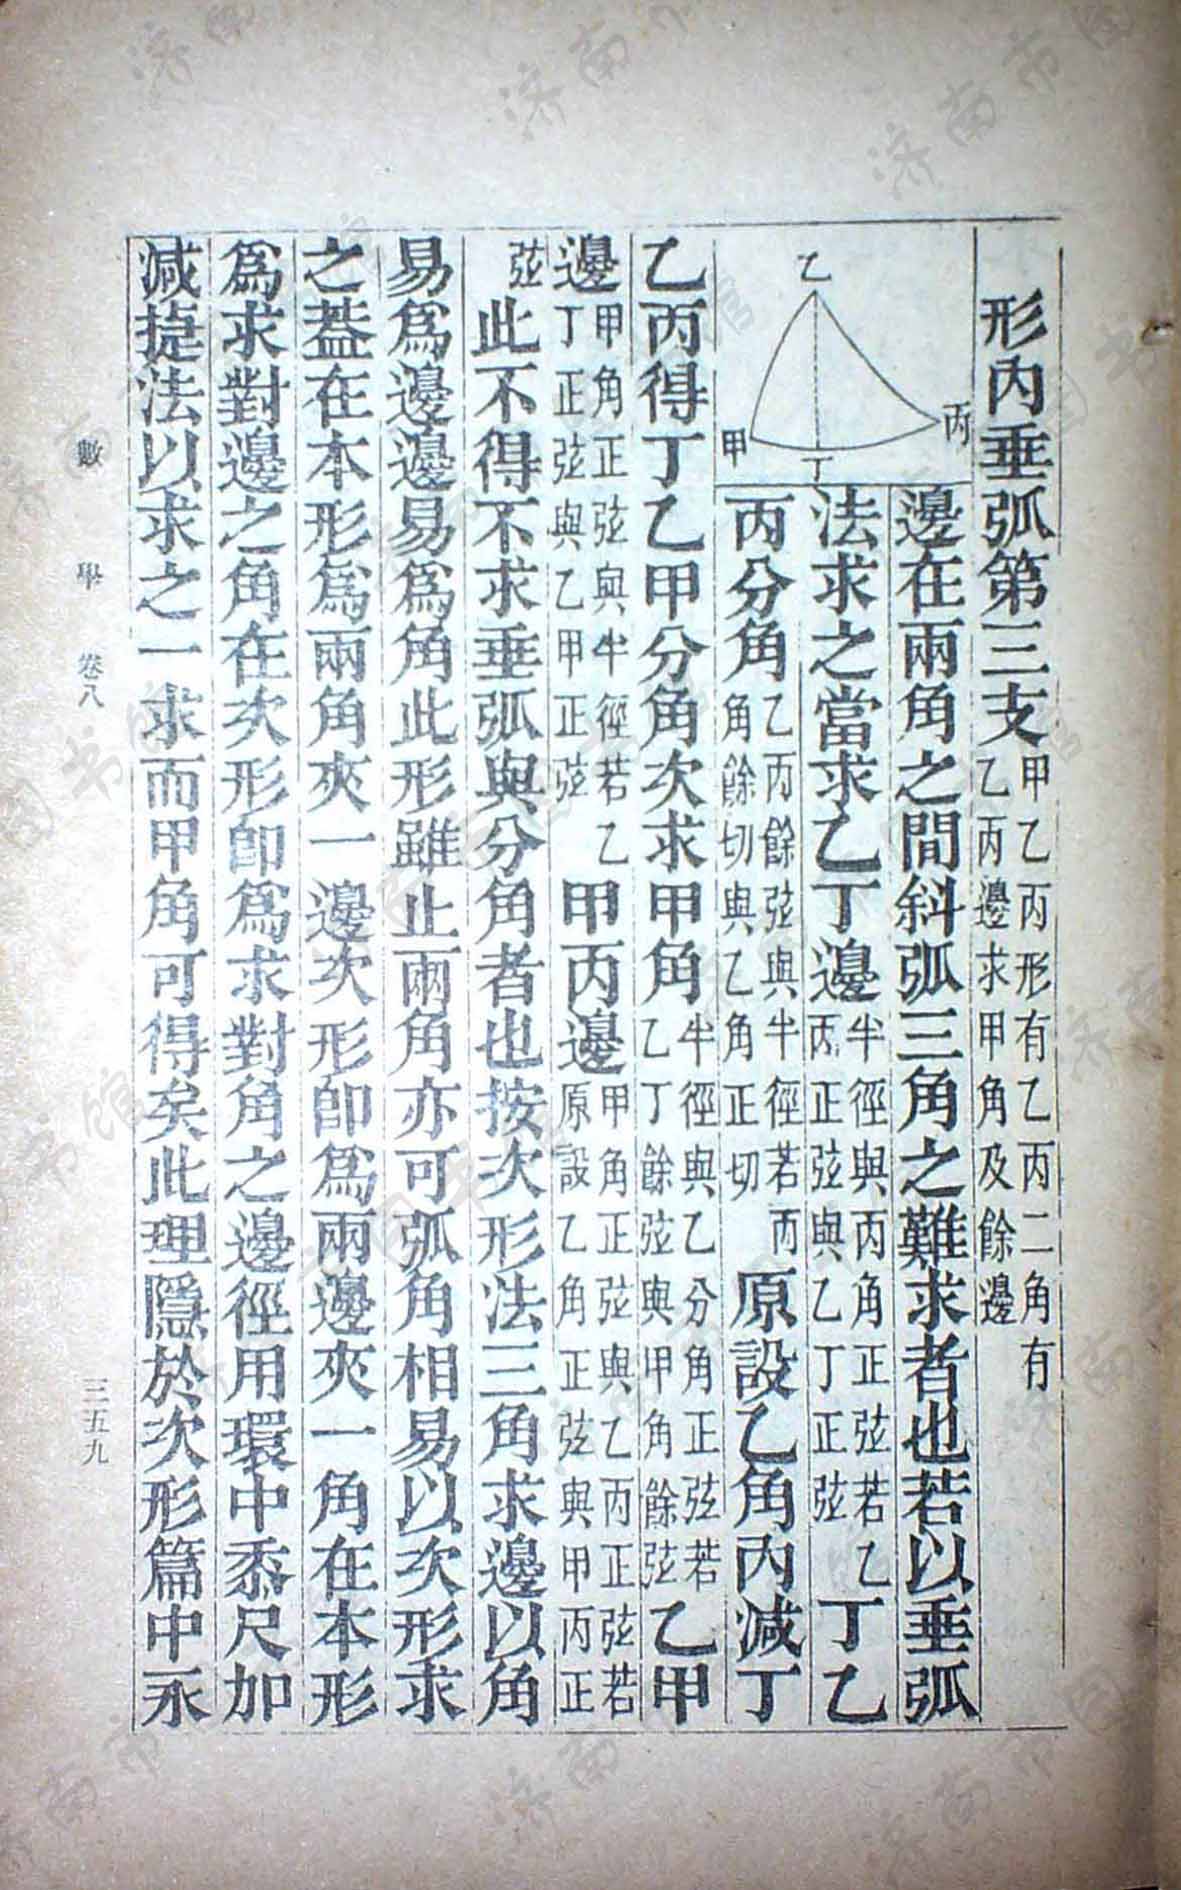 形內垂弧第三支甲乙丙形有乙丙二角有
乙丙邊求甲角及餘邊
乙
甲
丙
丁
邊在兩角之間斜弧三角之難求者也若以垂弧
法求之當求乙丁邊半徑與丙角正弦若乙
丙正弦與乙丁正弦丁乙
丙分角乙丙餘弦與半徑若丙
角餘切與乙角正切原設乙角內減丁
乙丙得丁乙甲分角次求甲角半徑與乙分角正弦若
乙丁餘弦與甲角餘弦乙甲
邊甲角正弦與半徑若乙
丁正弦與乙甲正弦甲丙邊甲角正弦與乙丙正弦若
原設乙角正弦與甲丙正
弦此不得不求垂弧與分角者也按次形法三角求邊以角
易爲邊邊易爲角此形雖止兩角亦可弧角相易以次形求
之蓋在本形爲兩角夾一邊次形卽爲兩邊夾一角在本形
爲求對邊之角在次形卽爲求對角之邊徑用環中黍尺加
減捷法以求之一求而甲角可得矣此理隱於次形篇中
數學 卷八 三五九
济南市图书馆